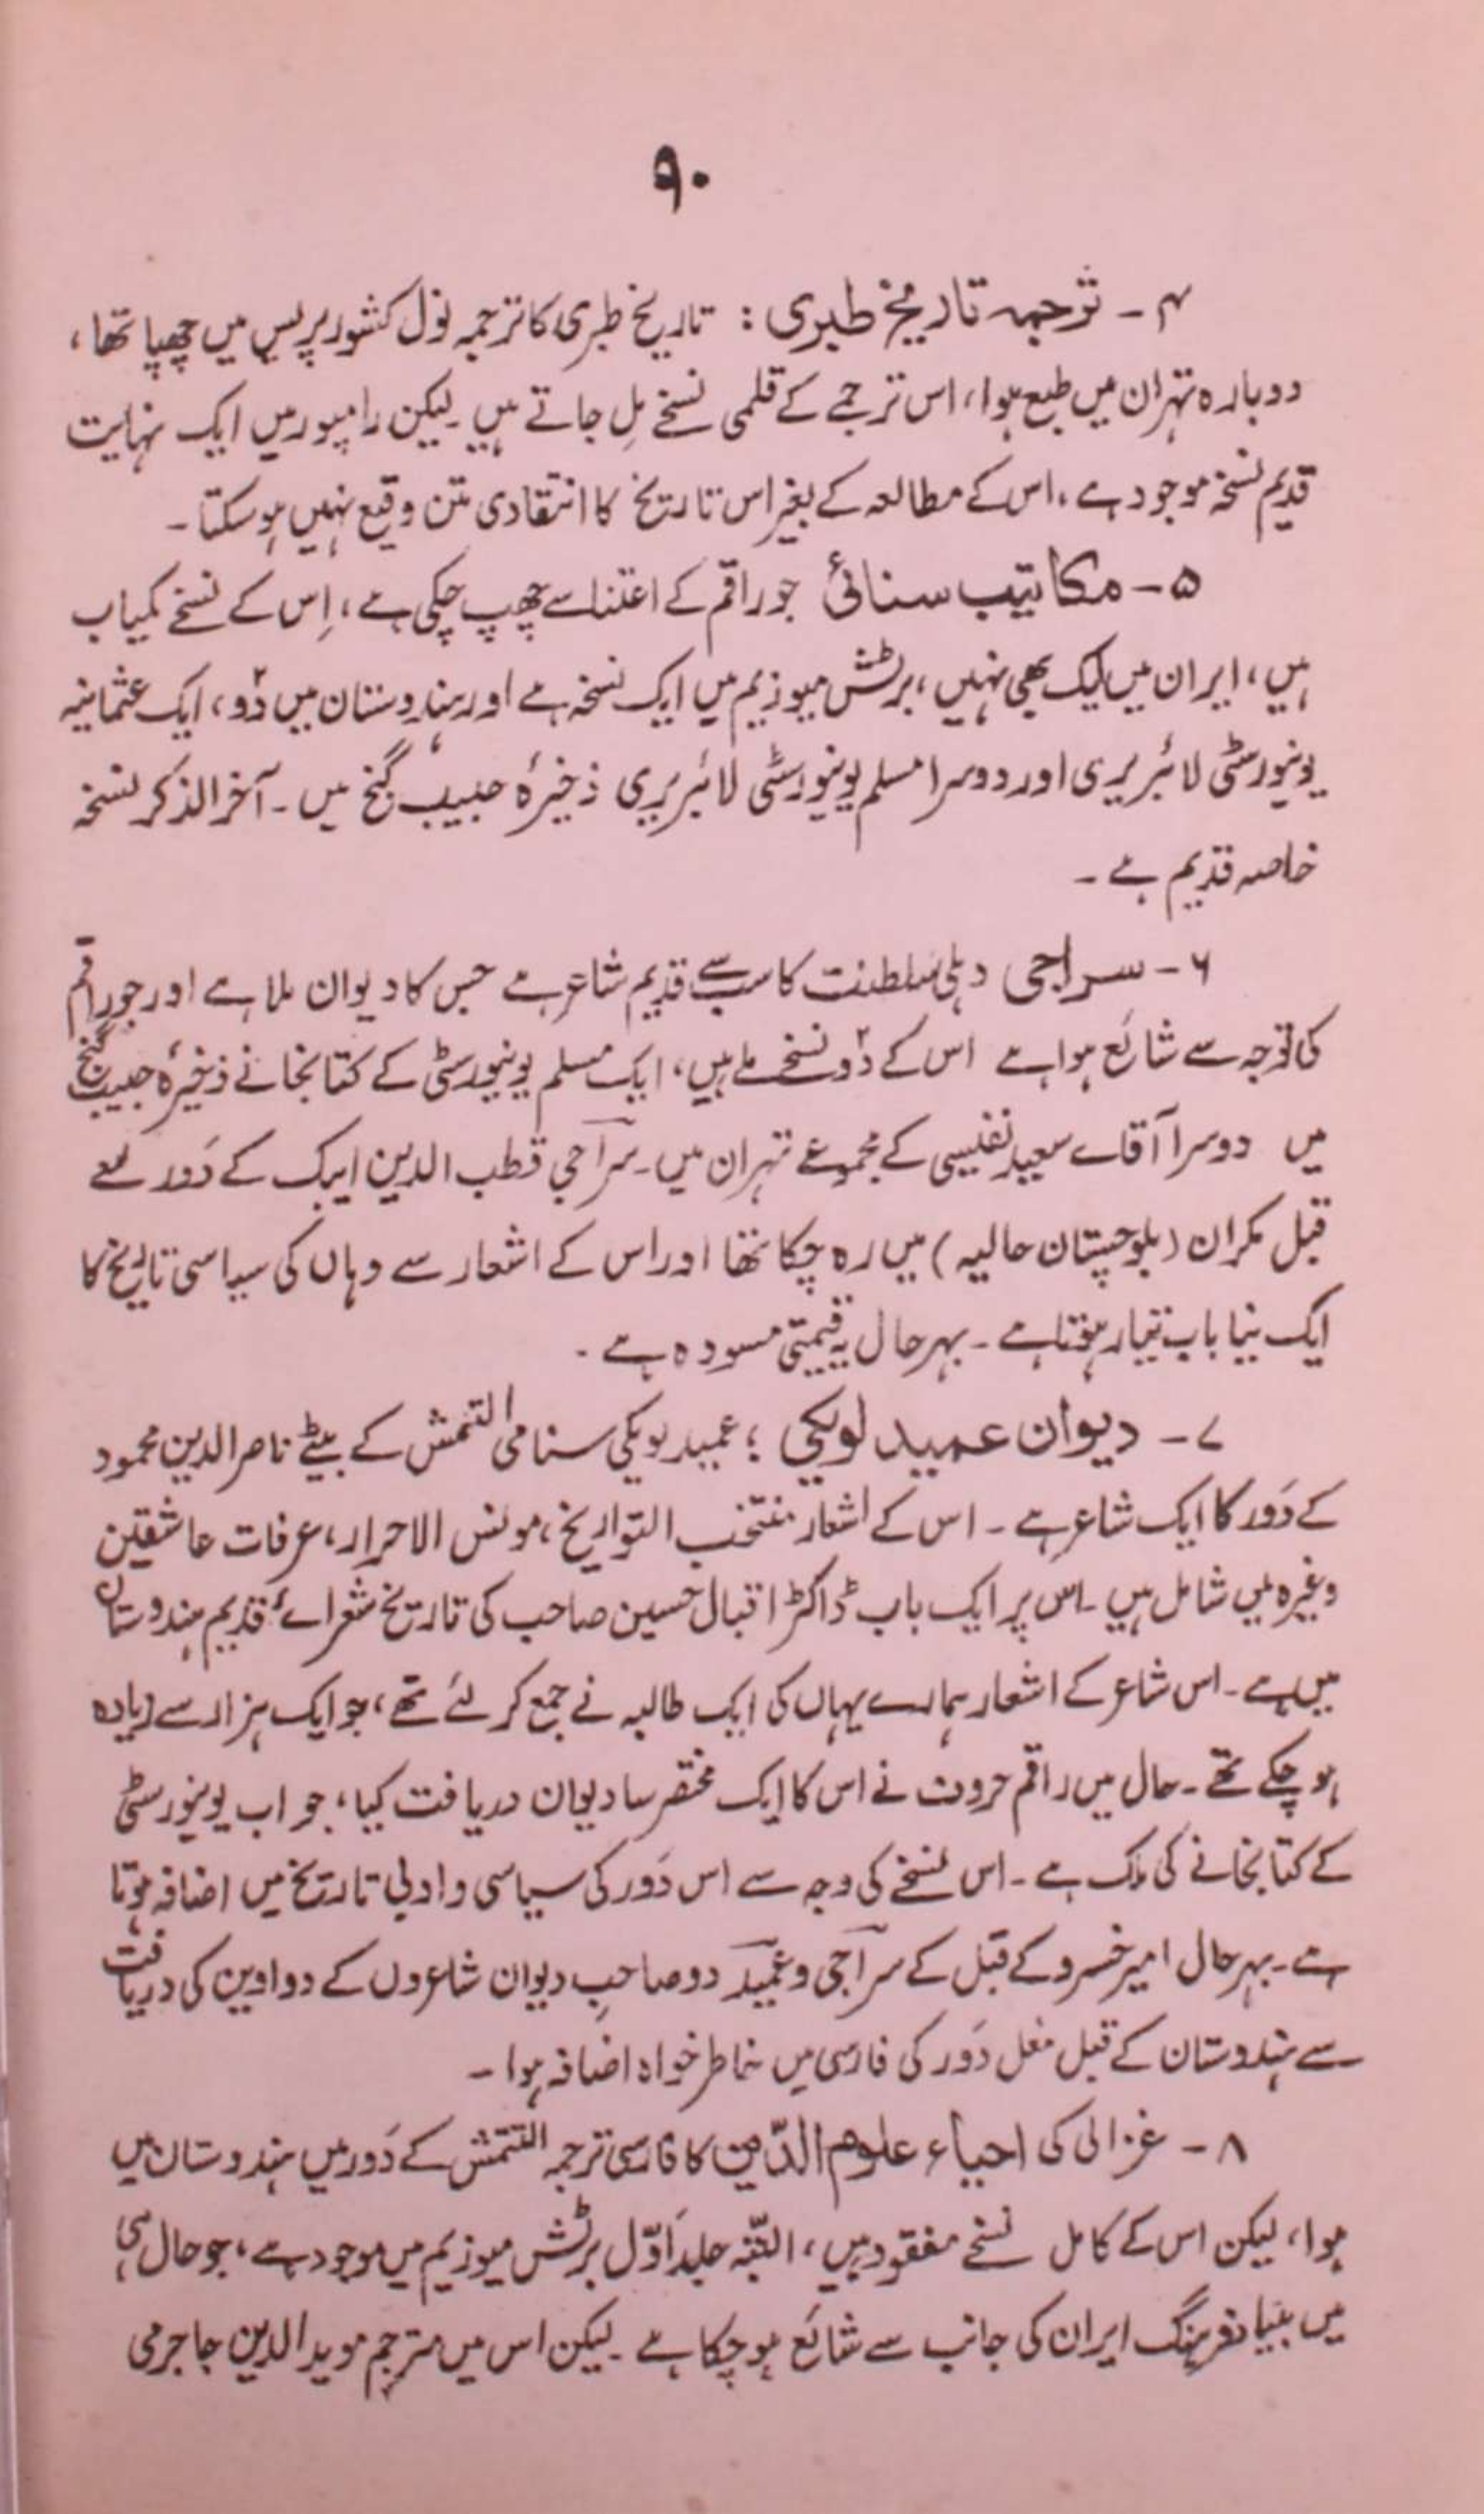 ۹۰
۴ - ترجمہ تاریخ طبری : تاریخ طبری کا ترجمہ نول کشور پریس میں چھپا تھا،
دوبارہ تہران میں طبع ہوا، اس ترجمے کے قلمی نسخے مِل جاتے ہیں۔ لیکن رامپور میں ایک نہایت
قدیم نسخہ موجود ہے، اس کے مطالعہ کے بغیر اس تاریخ کا انتقادی متن وقیع نہیں ہو سکتا۔
۵ - مکاتیب سنائی جو راقم کے اعتنا سے چھپ چکی ہے، اِس کے نسخے کمیاب
ہیں، ایران میں ایک بھی نہیں، برٹش میوزیم میں ایک نسخہ ہے اور ہندوستان میں دو، ایک عثمانیہ
یونیورسٹی لائبریری اور دوسرا مسلم یونیورسٹی لائبریری ذخیرۂ حبیب گنج میں۔ آخر الذکر نسخہ
خاصہ قدیم ہے۔
۶ - سراجی دہلی سلطنت کا سب سے قدیم شاعر ہے جس کا دیوان ملا ہے اور جو راقم
کی توجہ سے شائع ہوا ہے اس کے دو نسخے ملے ہیں، ایک مسلم یونیورسٹی کے کتابخانے ذخیرۂ حبیب گنج
میں دوسرا آقاے سعید نفیسی کے مجموعے تہران میں۔ سراجی قطب الدین ایبک کے دَور سے
قبل مکران (بلوچستان حالیہ) میں رہ چکا تھا اور اس کے اشعار سے وہاں کی سیاسی تاریخ کا
ایک نیا باب تیار ہوتا ہے۔ بہرحال یہ قیمتی مسودہ ہے۔
۷ - دیوان عمید لویکی : عمید لویکی سنامی التتمش کے بیٹے ناصر الدین محمود
کے دَور کا ایک شاعر ہے۔ اس کے اشعار منتخب التواریخ، مونس الاحرار، عرفات عاشقین
وغیرہ میں شامل ہیں۔ اس پر ایک باب ڈاکٹر اقبال حسین صاحب کی تاریخ شعراے قدیم ہندوستان
میں ہے۔ اس شاعر کے اشعار ہمارے یہاں کی ایک طالبہ نے جمع کر لئے تھے، جو ایک ہزار سے زیادہ
ہو چکے تھے۔ حال میں راقم حروف نے اس کا ایک مختصر سا دیوان دریافت کیا، جو اب یونیورسٹی
کے کتابخانے کی ملک ہے۔ اس نسخے کی وجہ سے اس دَور کی سیاسی و ادبی تاریخ میں اضافہ ہوتا
ہے۔ بہرحال امیر خسرو کے قبل کے سراجی و عمید دو صاحبِ دیوان شاعروں کے دواوین کی دریافت
سے ہندوستان کے قبل مغل دَور کی فارسی میں خاطر خواہ اضافہ ہوا۔
۸ - غزالی کی احیاء علوم الدّین کا فارسی ترجمہ التتمش کے دَور میں ہندوستان میں
ہوا، لیکن اس کے کامل نسخے مفقود ہیں، البتّہ جلد اوّل برٹش میوزیم میں موجود ہے، جو حال ہی
میں بنیاد فرہنگ ایران کی جانب سے شائع ہو چکا ہے۔ لیکن اس میں مترجم موید الدین جاجرمی